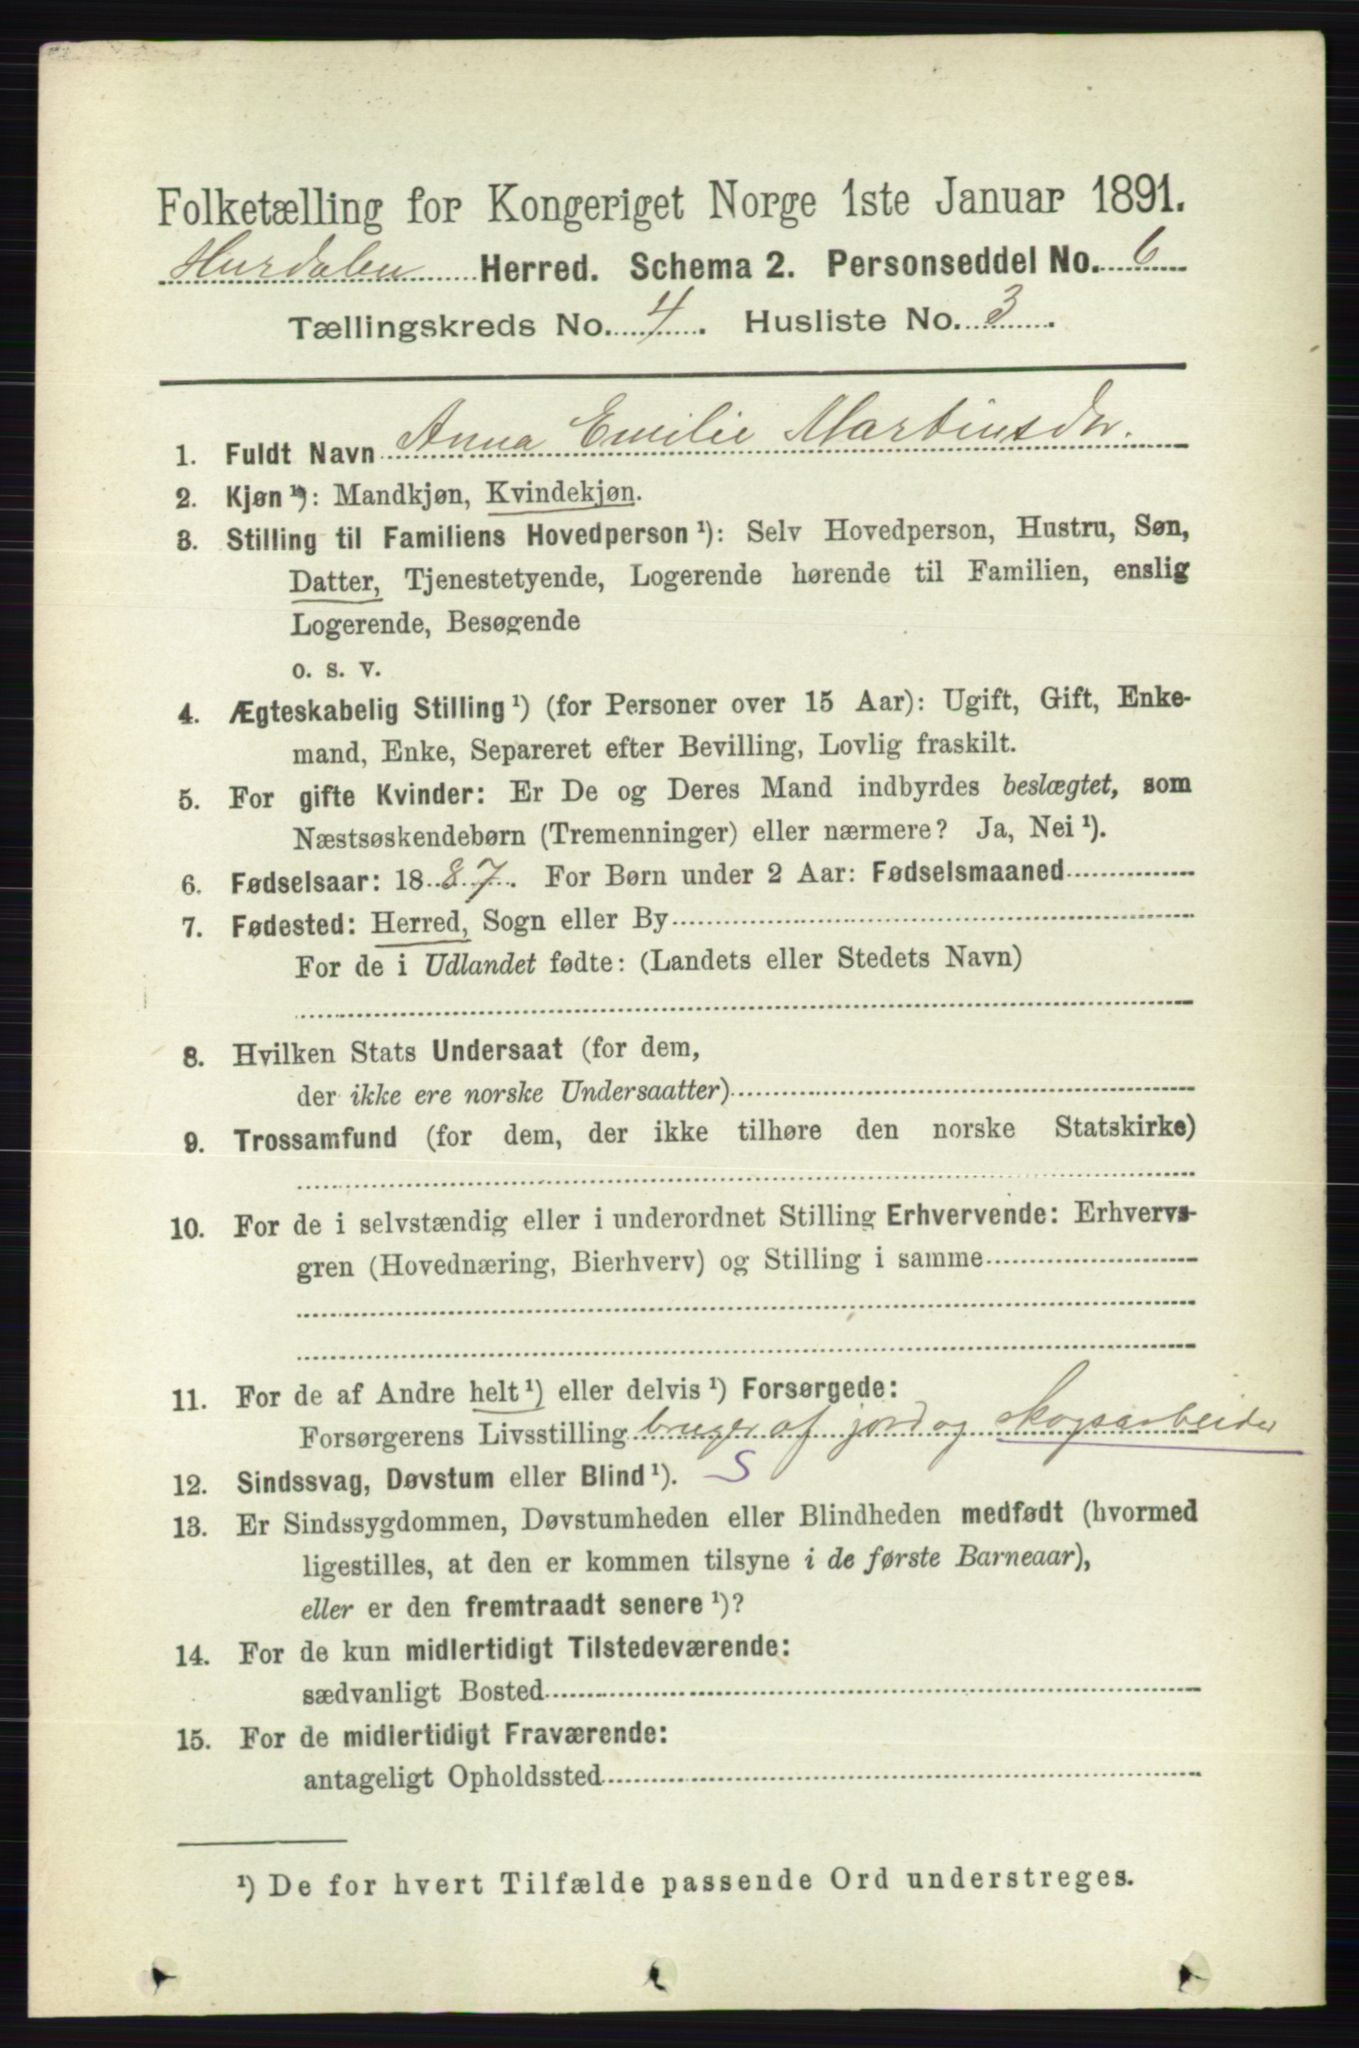 Folketælling for Kongeriget Norge 1ste Januar 1891.
Hurdalen Herred. Schema 2. Personseddel No. 6
Tællingskreds No. 4. Husliste No. 3.
1. Fuldt Navn Anna Emilie Martinsdtr.
2. Kjøn ¹): Mandkjøn, Kvindekjøn.
3. Stilling til Familiens Hovedperson ¹): Selv Hovedperson, Hustru, Søn,
Datter, Tjenestetyende, Logerende hørende til Familien, enslig
Logerende, Besøgende
o. s. v.
4. Ægteskabelig Stilling ¹) (for Personer over 15 Aar): Ugift, Gift, Enke-
mand, Enke, Separeret efter Bevilling, Lovlig fraskilt.
5. For gifte Kvinder: Er De og Deres Mand indbyrdes beslægtet, som
Næstsøskendebørn (Tremenninger) eller nærmere? Ja, Nei ¹).
6. Fødselsaar: 1887. For Børn under 2 Aar: Fødselsmaaned
7. Fødested: Herred, Sogn eller By
For de i Udlandet fødte: (Landets eller Stedets Navn)
8. Hvilken Stats Undersaat (for dem,
der ikke ere norske Undersaatter)
9. Trossamfund (for dem, der ikke tilhøre den norske Statskirke)
10. For de i selvstændig eller i underordnet Stilling Erhvervende: Erhvervs-
gren (Hovednæring, Bierhverv) og Stilling i samme
11. For de af Andre helt ¹) eller delvis ¹) Forsørgede:
Forsørgerens Livsstilling bruger af jord og skogsarbeider
12. Sindssvag, Døvstum eller Blind ¹). S
13. Er Sindssygdommen, Døvstumheden eller Blindheden medfødt (hvormed
ligestilles, at den er kommen tilsyne i de første Barneaar),
eller er den fremtraadt senere ¹)?
14. For de kun midlertidigt Tilstedeværende:
sædvanligt Bosted
15. For de midlertidigt Fraværende:
antageligt Opholdssted
¹) De for hvert Tilfælde passende Ord understreges.